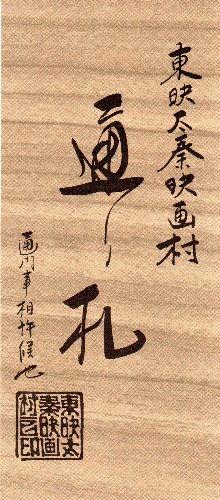 東映太秦映画村
通り札
通川事相許候也
東映太
秦映画
村之印